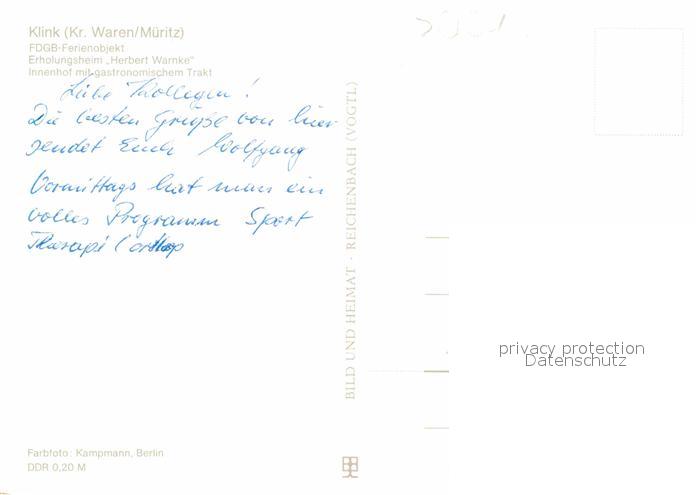 Klink (Kr. Waren/Müritz)
FDGB-Ferienobjekt
Erholungsheim „Herbert Warnke"
Innenhof mit gastronomischem Trakt
Liebe Kollegen!
Die besten Grüße von hier
sendet Euch Wolfgang
Vormittags hat man ein
volles Programm Sport
Therapi
BILD UND HEIMAT · REICHENBACH (VOGTL)
privacy protection
Datenschutz
Farbfoto: Kampmann, Berlin
DDR 0,20 M